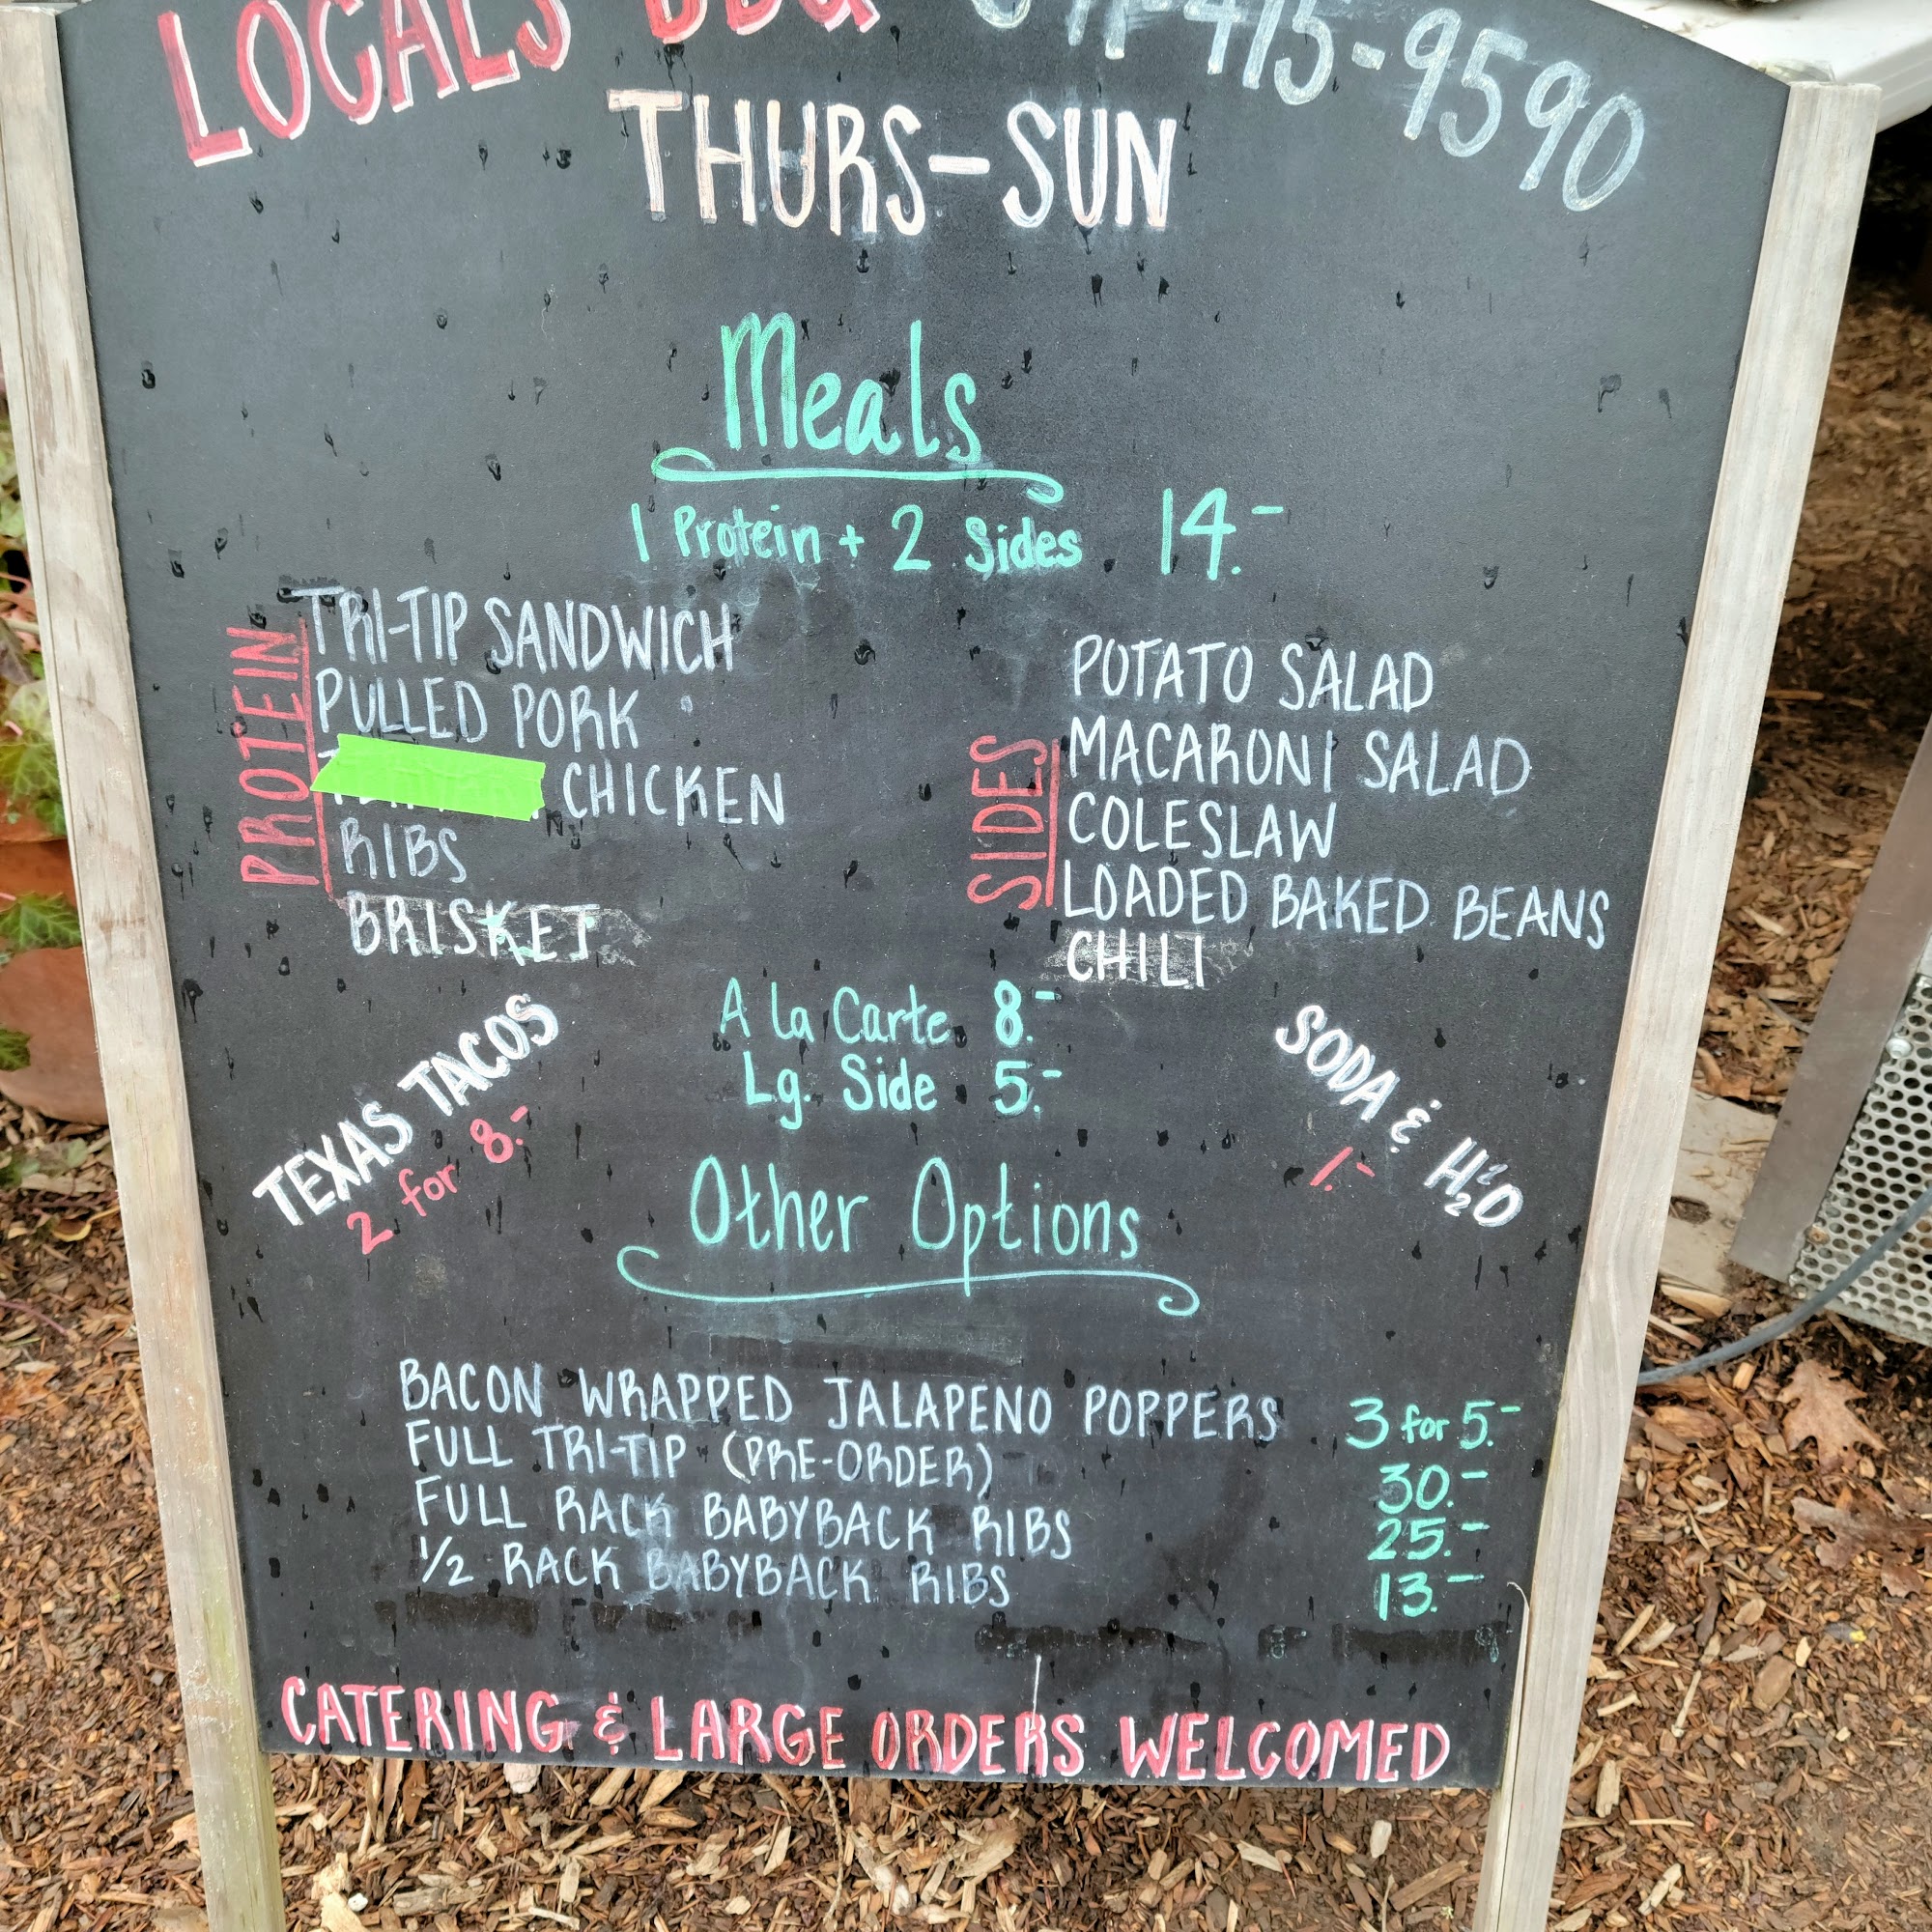 LOCALS BBQ 415-9590
THURS-SUN
Meals
1 Protein + 2 Sides 14.-
PROTEIN
TRI-TIP SANDWICH
PULLED PORK
CHICKEN
RIBS
BRISKET
SIDES
POTATO SALAD
MACARONI SALAD
COLESLAW
LOADED BAKED BEANS
CHILI
A la Carte 8.-
Lg. Side 5.-
TEXAS TACOS
2 for 8.-
SODA & H2O
1.-
Other Options
BACON WRAPPED JALAPENO POPPERS 3 for 5.-
FULL TRI-TIP (PRE-ORDER) 30.-
FULL RACK BABYBACK RIBS 25.-
1/2 RACK BABYBACK RIBS 13.-
CATERING & LARGE ORDERS WELCOMED